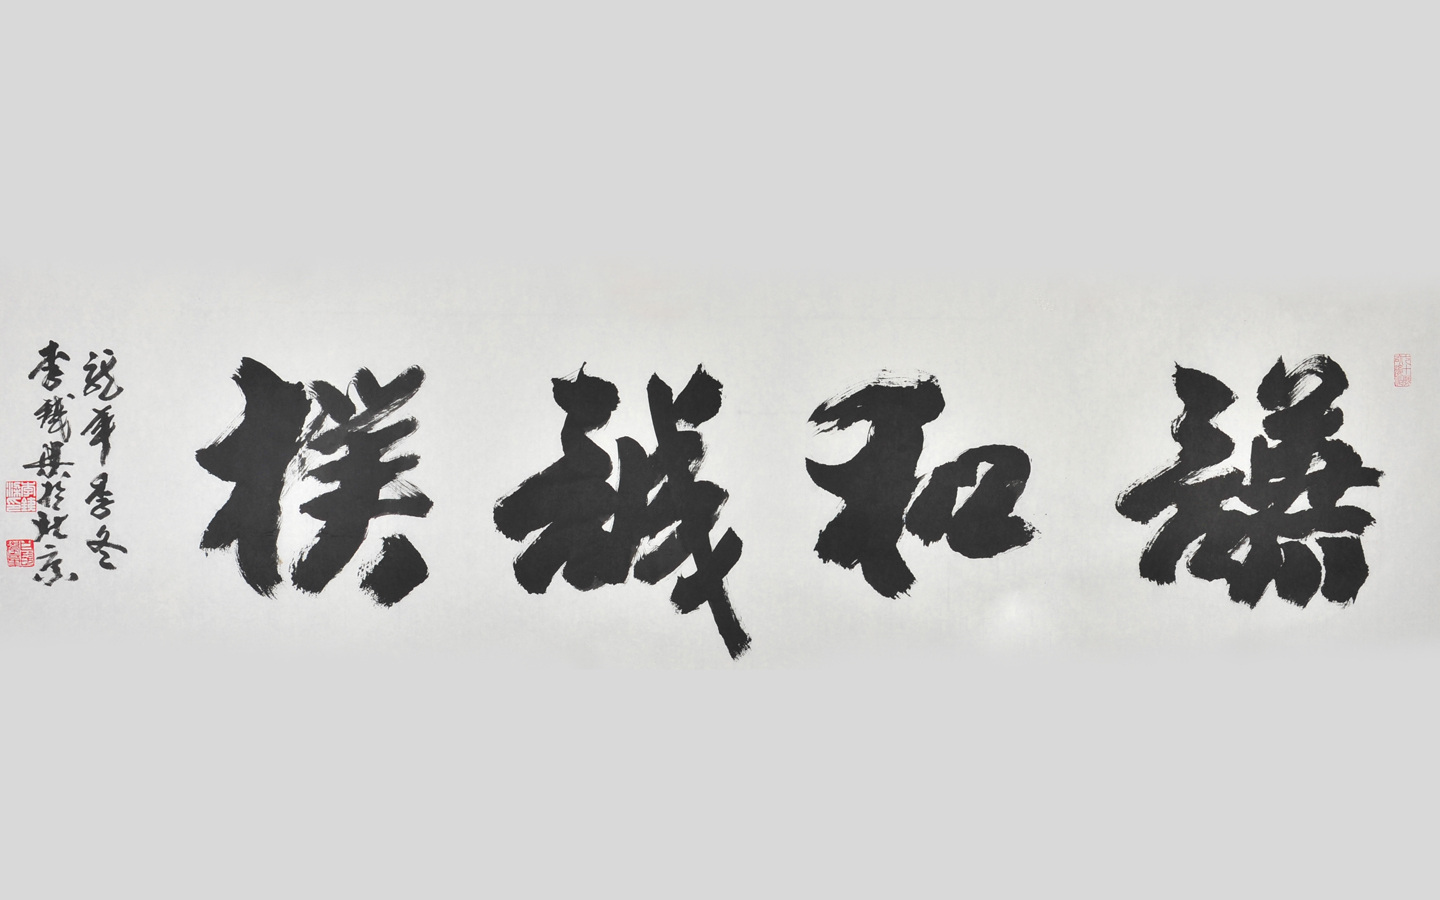 謙和誠樸
龍年季冬
李鐸 於北京